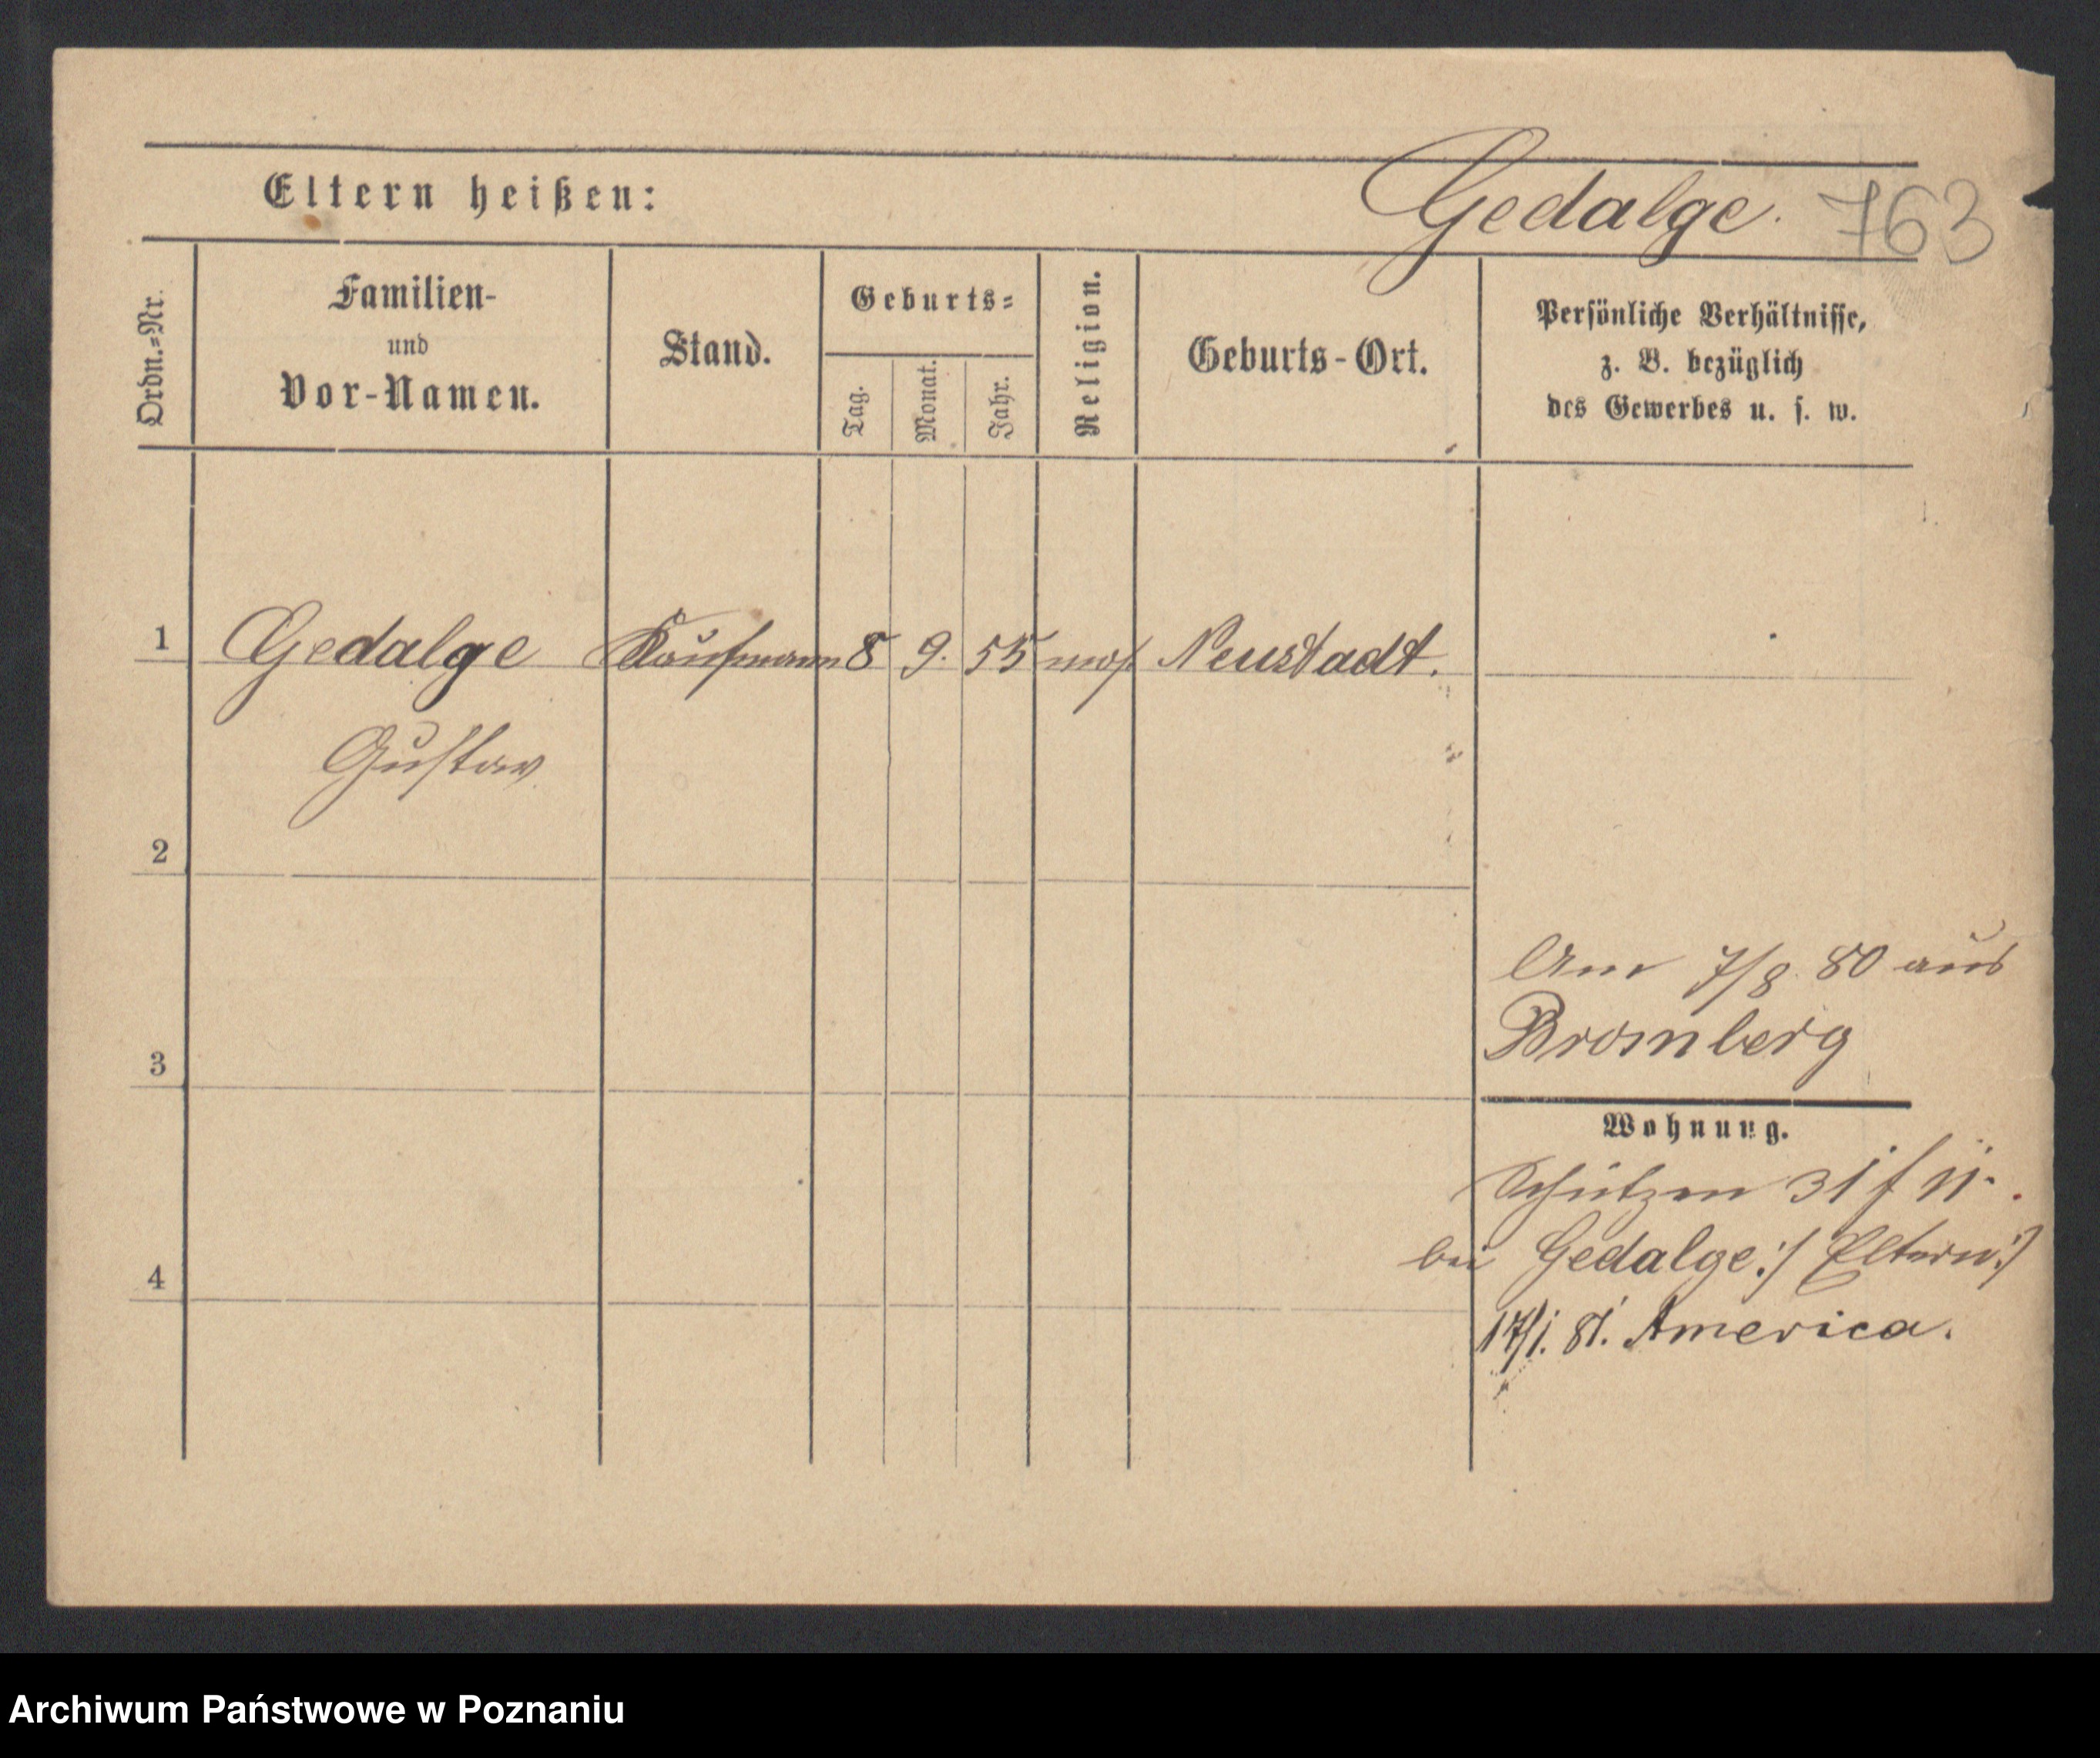 Eltern heißen:
Gedalge. 763
Ordn.-Nr.
Familien-
und
Vor-Namen.
Stand.
Geburts-
Tag.
Monat.
Jahr.
Religion.
Geburts-Ort.
Persönliche Verhältnisse,
z. B. bezüglich
des Gewerbes u. s. w.
1 Gedalge Kaufmann 8 9. 55 mos. Neustadt.
Gustav
2
Am 7/8. 80 aus
Bromberg
3
Wohnung.
Schützen 31
bei Gedalge :/ Eltern :/
4
17/1. 81. America.
Archiwum Państwowe w Poznaniu